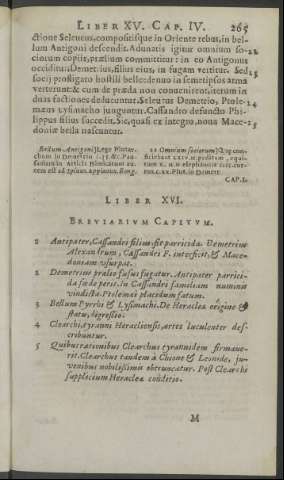 LIBER XV. CAP. IV. 265
ctione Seleucus, compositisque in Oriente rebus, in bel-
lum Antigoni descendit. Adunatis igitur omnium so- 22
ciorum copiis, prælium committitur: in eo Antigonus
occiditur: Demetrius, filius eius, in fugam vertitur. Sed 23
socij profligato hostili bello: denuo in semetipsos arma
verterunt: & cum de præda non convenirent, iterum in
duas factiones deducuntur. Seleucus Demetrio, Ptole- 24
mæus Lysimacho junguntur. Cassandro defuncto Phi-
lippus filius succedit. Sic, quasi ex integro, nova Mace- 25
doniæ bella nascuntur.
Bellum Antigoni] Lege Plutar-
chum in Demetrio
22 Omnium sociorum]
CAP. I.
LIBER XVI.
BREVIARIUM CAPITUM.
1 Antipater, Cassandri filius, fit parricida. Demetrius
Alexandrum, Cassandri F. interficit, & Mace-
doniam usurpat.
2 Demetrius prælio fusus fugatur. Antipater parrici-
da fœde perit. In Cassandri familiam numinis
vindicta. Ptolemæi placidum fatum.
3 Bellum Pyrrhi & Lysimachi. De Heracleæ origine &
statu, digressio.
4 Clearchi, tyranni Heracliensis, artes luculenter des-
cribuntur.
5 Quibus rationibus Clearchus tyrannidem firmave-
rit. Clearchus tandem à Chione & Leonide, ju-
venibus nobilissimis obtruncatur. Post Clearchi
supplicium Heracleæ conditio.
M